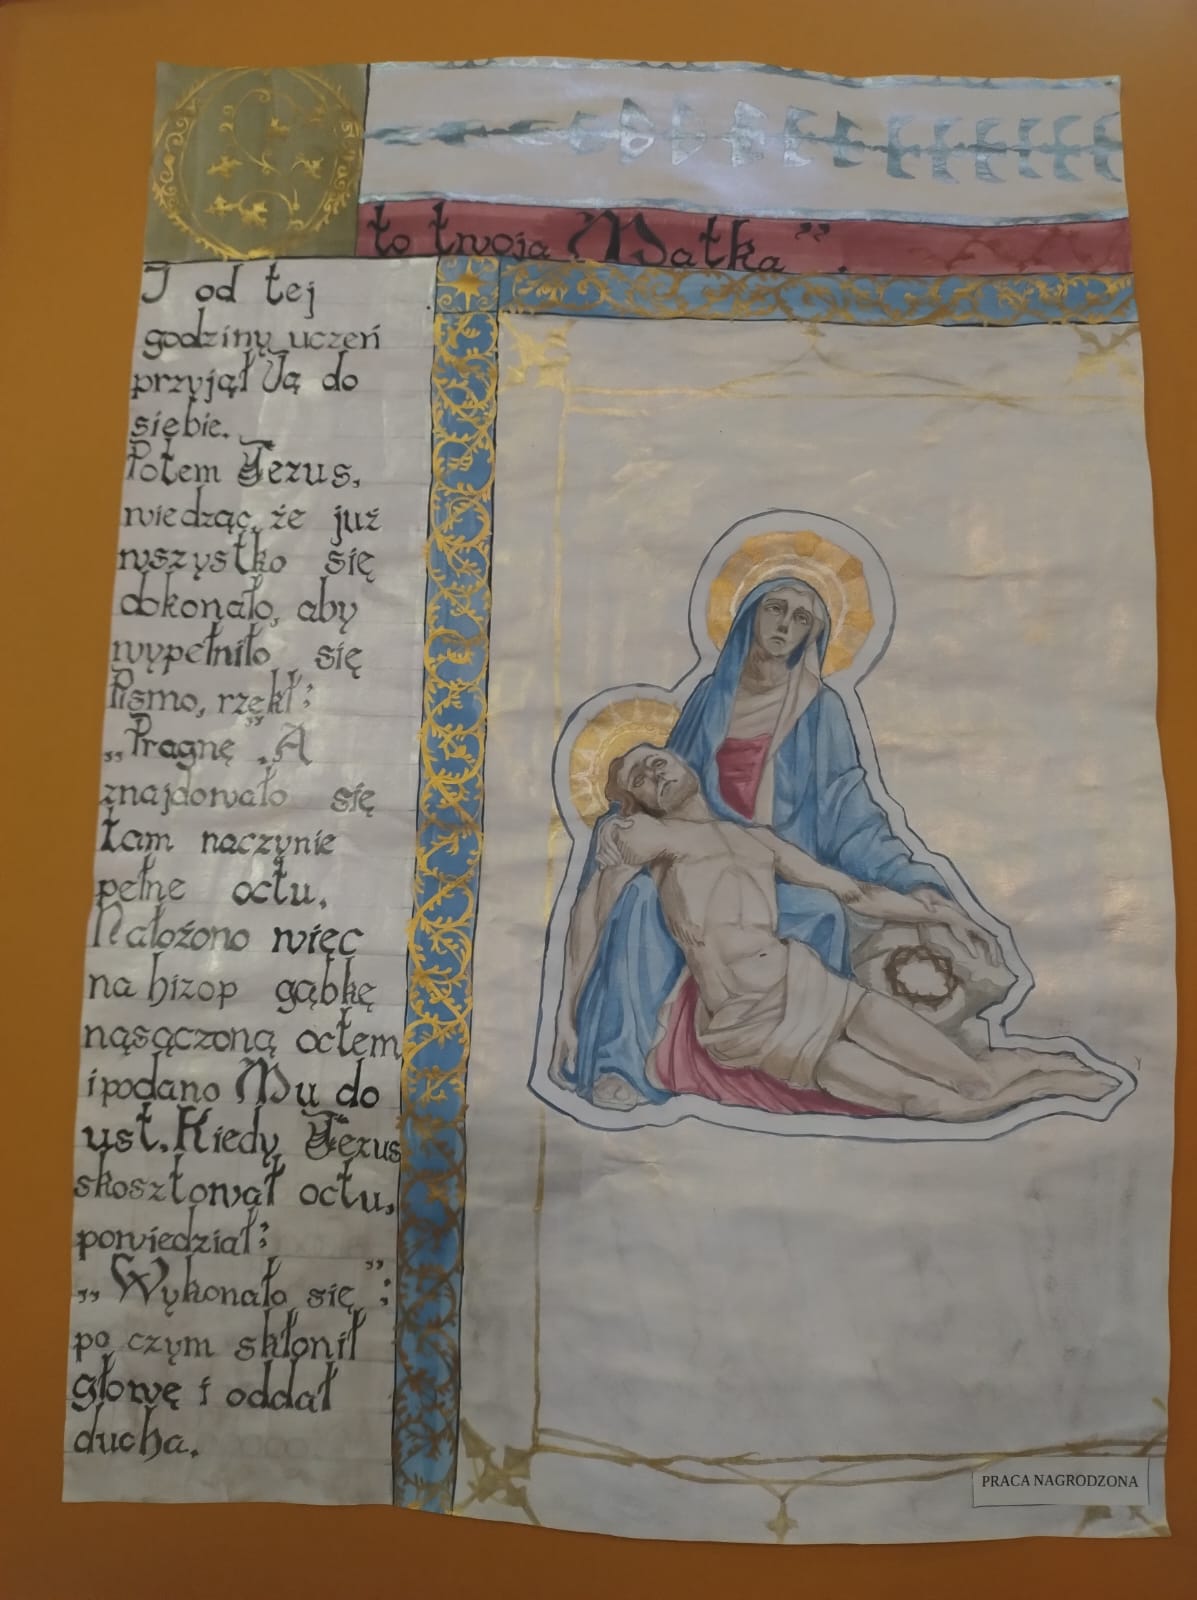 to twoja Matka".
I od tej
godziny uczeń
przyjął Ją do
siebie.
Potem Jezus,
wiedząc, że już
wszystko się
dokonało, aby
wypełniło się
Pismo, rzekł:
„Pragnę". A
znajdowało się
tam naczynie
pełne octu.
Nałożono więc
na hizop gąbkę
nąsączoną octem
i podano Mu do
ust. Kiedy Jezus
skosztował octu,
powiedział:
„Wykonało się";
po czym skłonił
głowę i oddał
ducha.
PRACA NAGRODZONA